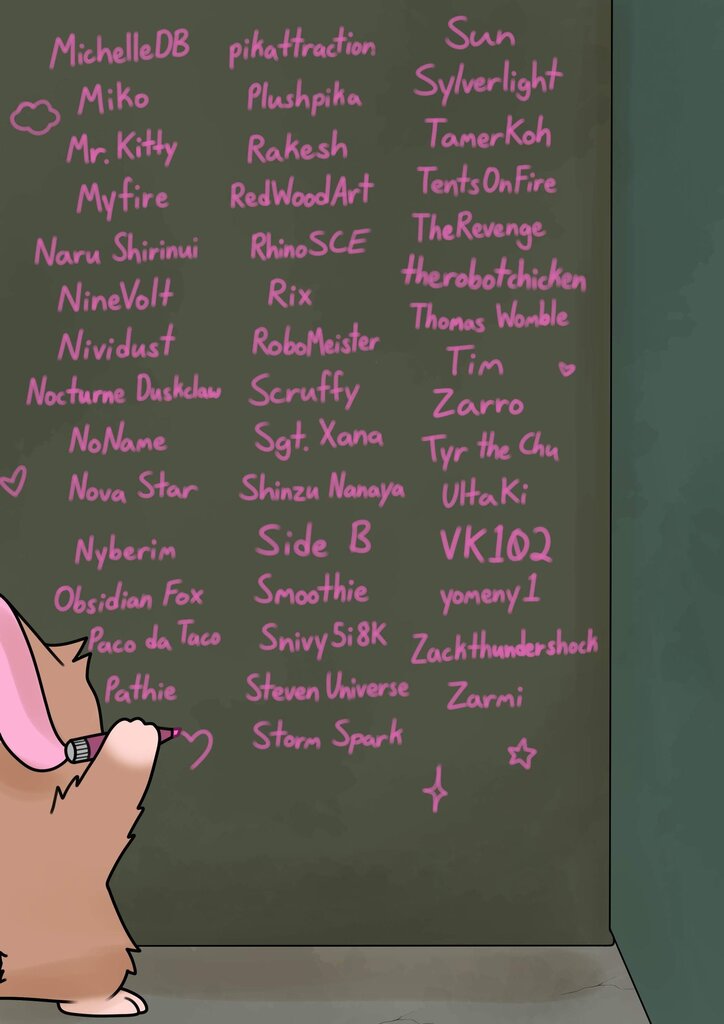 MichelleDB
Miko
Mr. Kitty
Myfire
Naru Shirinui
NineVolt
Nividust
Nocturne Duskclaw
NoName
Nova Star
Nyberim
Obsidian Fox
Paco da Taco
Pathie
pikattraction
Plushpika
Rakesh
RedWoodArt
RhinoSCE
Rix
RoboMeister
Scruffy
Sgt. Xana
Shinzu Nanaya
Side B
Smoothie
Snivy5i8K
Steven Universe
Storm Spark
Sun
Sylverlight
TamerKoh
TentsOnFire
TheRevenge
therobotchicken
Thomas Womble
Tim
Zarro
Tyr the Chu
UltaKi
VK102
yomeny1
Zackthundershock
Zarmi